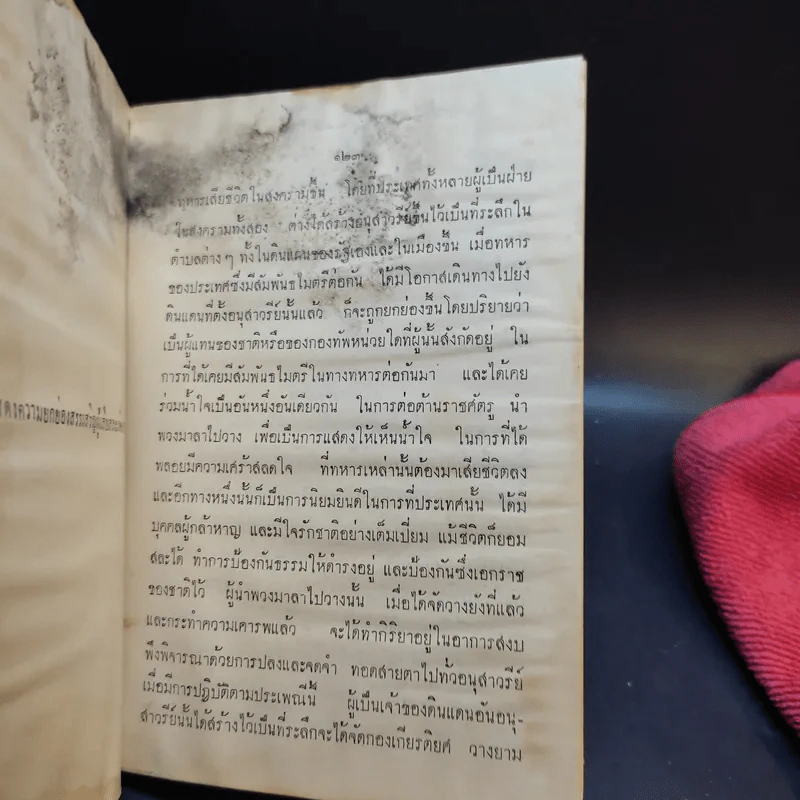 ๑๒๓
ทหารเสียชีวิตในสงครามขึ้น โดยที่ประเทศทั้งหลายผู้เป็นฝ่าย
ในสงครามทั้งสอง ต่างได้สร้างอนุสาวรีย์ขึ้นไว้เป็นที่ระลึกใน
ตำบลต่าง ๆ ทั้งในดินแดนของรัฐเองและในเมืองขึ้น เมื่อทหาร
ของประเทศซึ่งมีสัมพันธไมตรีต่อกัน ได้มีโอกาสเดินทางไปยัง
ดินแดนที่ตั้งอนุสาวรีย์นั้นแล้ว ก็จะถูกยกย่องขึ้นโดยปริยายว่า
เป็นผู้แทนของชาติหรือของกองทัพหน่วยใดที่ผู้นั้นสังกัดอยู่ ใน
การที่ได้เคยมีสัมพันธไมตรีในทางทหารต่อกันมา และได้เคย
ร่วมน้ำใจเป็นอันหนึ่งอันเดียวกัน ในการต่อต้านราชศัตรู นำ
พวงมาลาไปวาง เพื่อเป็นการแสดงให้เห็นน้ำใจ ในการที่ได้
พลอยมีความเศร้าสลดใจ ที่ทหารเหล่านั้นต้องมาเสียชีวิตลง
และอีกทางหนึ่งนั้นก็เป็นการนิยมยินดีในการที่ประเทศนั้น ได้มี
บุคคลผู้กล้าหาญ และมีใจรักชาติอย่างเต็มเปี่ยม แม้ชีวิตก็ยอม
สละได้ ทำการป้องกันธรรมให้ดำรงอยู่ และป้องกันซึ่งเอกราช
ของชาติไว้ ผู้นำพวงมาลาไปวางนั้น เมื่อได้จัดวางยังที่แล้ว
และกระทำความเคารพแล้ว จะได้ทำกิริยาอยู่ในอาการสงบ
พึงพิจารณาด้วยการปลงและจดจำ ทอดสายตาไปทั่วอนุสาวรีย์
เมื่อมีการปฏิบัติตามประเพณีนี้ ผู้เป็นเจ้าของดินแดนอันอนุ-
สาวรีย์นั้นได้สร้างไว้เป็นที่ระลึกจะได้จัดกองเกียรติยศ วางยาม